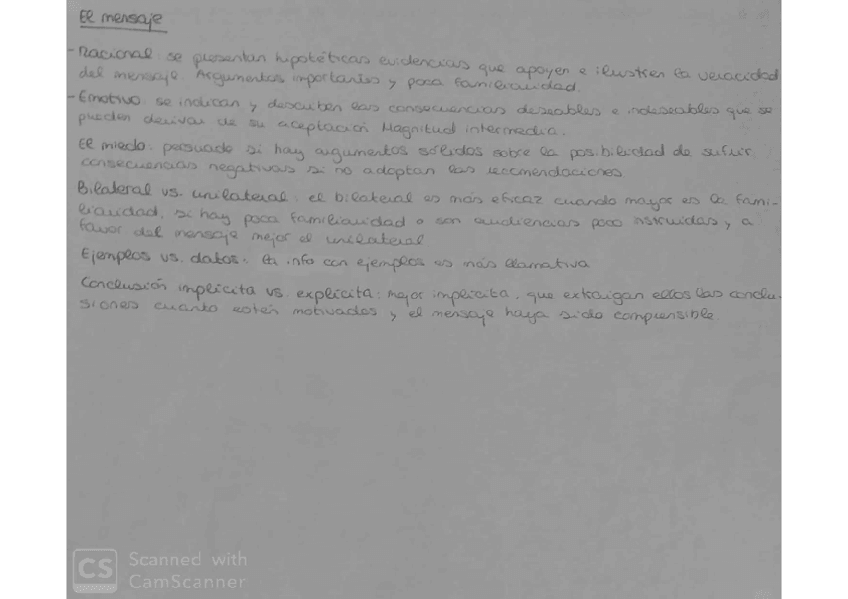 El mensaje
- Racional: se presentan hipotéticas evidencias que apoyen e ilustren la veracidad
del mensaje. Argumentos importantes y poca familiaridad.
- Emotivo: se indican y describen las consecuencias deseables e indeseables que se
pueden derivar de su aceptación. Magnitud intermedia.
El miedo: persuade si hay argumentos sólidos sobre la posibilidad de sufrir
consecuencias negativas si no adoptan las recomendaciones
Bilateral vs. unilateral: el bilateral es más eficaz cuando mayor es la fami-
liaridad, si hay poca familiaridad o son audiencias poco instruidas y a
favor del mensaje mejor el unilateral
Ejemplos vs. datos: la info con ejemplos es más llamativa
Conclusión implícita vs. explícita: mejor implícita, que extraigan ellos las conclu-
siones cuanto estén motivados y el mensaje haya sido comprensible.
CS Scanned with
CamScanner